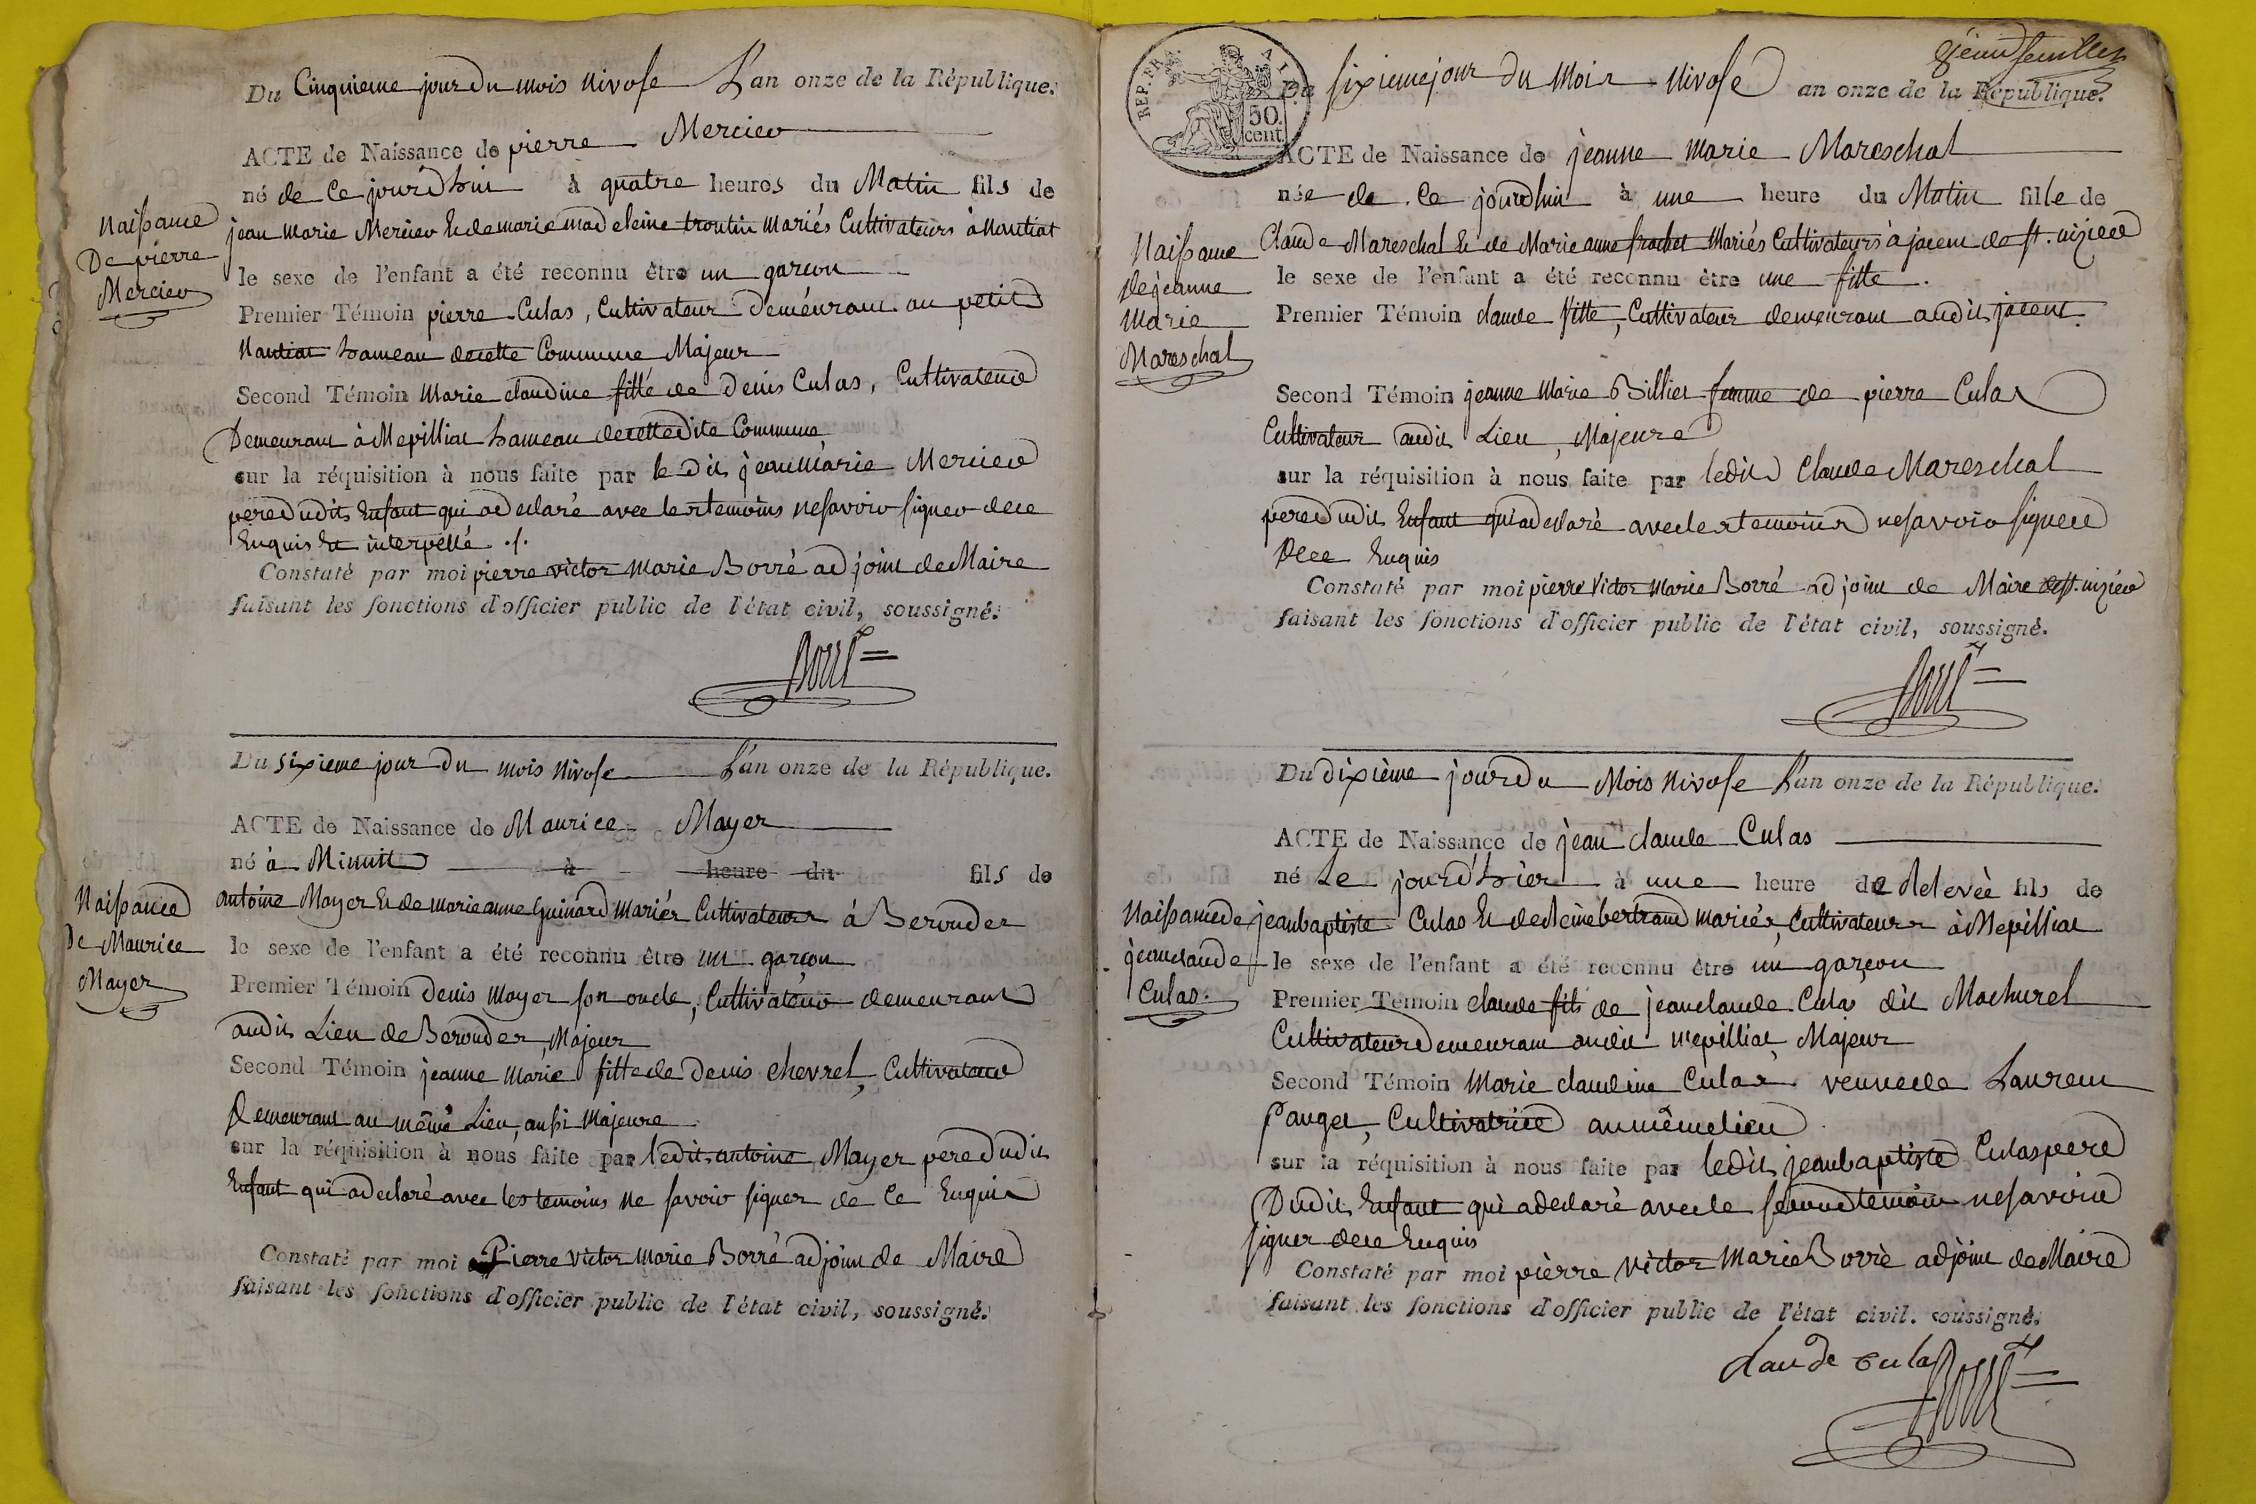 Du Cinquieme jour du mois nivose L'an onze de la République.
ACTE de Naissance de pierre Mercier
né de Ce jourd'huy à quatre heures du Matin fils de
jean marie Mercier Et de marie madeleine troutin mariés Cultivateurs à Nantiat
Naissance
De pierre
Mercier
le sexe de l'enfant a été reconnu être un garçon
Premier Témoin pierre Culas, Cultivateur Demeurant au petit
Nantiat hameau decette Commune Majeur
Second Témoin Marie claudine fille de Denis Culas, Cultivateur
Demeurant à Mepilliat hameau decettedite Commune
sur la réquisition à nous faite par le dit jean marie Mercier
pere dudit Enfant qui adeclaré avec les temoins ne savoir signer dece
Enquis Et interpellé ./.
Constaté par moi pierre victor marie Borré adjoint de Maire
faisant les fonctions d'officier public de l'état civil, soussigné.
Borré
Du sixieme jour du mois nivose L'an onze de la République.
ACTE de Naissance de Maurice Mayer
né à Minuit à heure du fils de
antoine Mayer Et de marie anne Guinard mariés Cultivateurs à Berouder
Naissance
De Maurice
Mayer
le sexe de l'enfant a été reconnu être un garçon
Premier Témoin Denis Mayer son oncle, Cultivateur demeurant
audit Lieu de Berouder, Majeur
Second Témoin jeanne marie fille de Denis chevrel, Cultivateur
Demeurant au même Lieu, aussi Majeure
sur la réquisition à nous faite par ledit antoine Mayer pere dudit
Enfant qui adeclaré avec les temoins ne savoir signer de ce Enquis
Constaté par moi Pierre victor marie Borré adjoint de Maire
faisant les fonctions d'officier public de l'état civil, soussigné.
8ieme feuillet
REP. FRA.
50.
cent.
Du sixieme jour du Mois Nivose an onze de la République.
ACTE de Naissance de jeanne marie Mareschal
née de Ce jourdhui à une heure du Matin fille de
Claude Mareschal Et de Marie anne frachet Mariés Cultivateurs à jacent de st. nizier
Naissance
de jeanne
Marie
Mareschal
le sexe de l'enfant a été reconnu être une fille.
Premier Témoin claude fille, Cultivateur demeurant audit jacent.
Second Témoin jeanne Marie Billiet femme de pierre Culas
Cultivateur audit Lieu, Majeure
sur la réquisition à nous faite par ledit Claude Mareschal
pere dudit Enfant qui adeclaré avecles temoins ne savoir signer
Dece Enquis
Constaté par moi pierre victor marie Borré adjoint de Maire de st. nizier
faisant les fonctions d'officier public de l'état civil, soussigné.
Borré
Du dixième jour du Mois nivose L'an onze de la République.
ACTE de Naissance de jean claude Culas
né Le jourd'hier à une heure de Relevèe fils de
jeanbaptiste Culas Et de Reine bertrand mariés, Cultivateurs à Mepilliat
Naissance de
jean claude
Culas.
le sexe de l'enfant a été reconnu être un garçon
Premier Témoin claude fils de jeanclaude Culas dit Machurel
Cultivateur Demeurant audit mepilliat, Majeur
Second Témoin Marie claudine Culas veuve de Laurent
pauget, Cultivatrice au même lieu
sur la réquisition à nous faite par ledit jeanbaptiste Culas pere
Dudit Enfant qui adeclaré avec le second temoin ne savoir
signer dece Enquis
Constaté par moi pièrre victor marie Borré adjoint de Maire
faisant les fonctions d'officier public de l'état civil. soussigné.
claude culas Borré